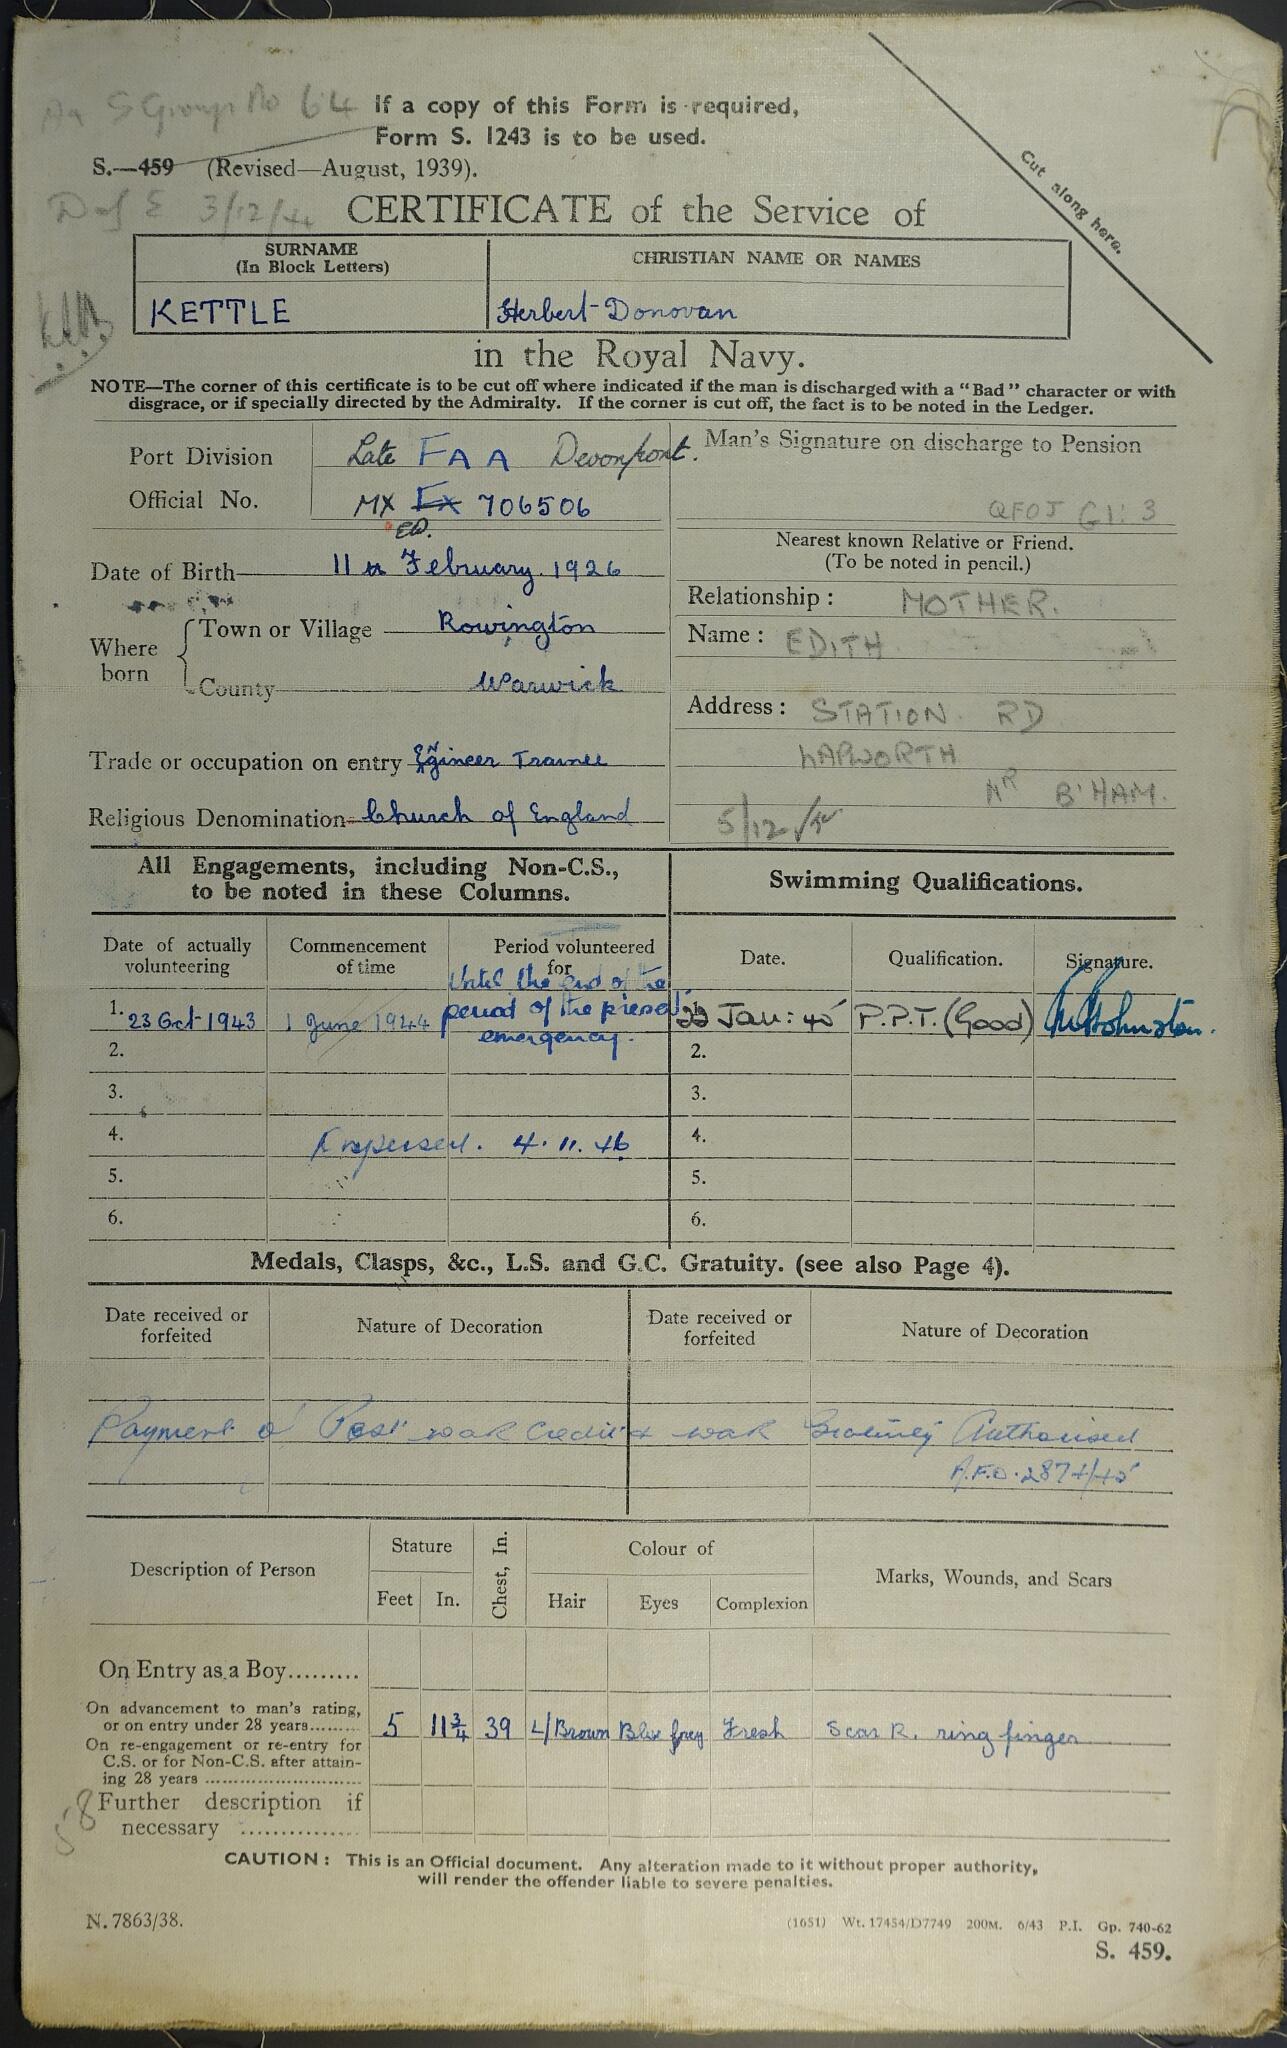 S Group No 64
If a copy of this Form is required,
Form S. 1243 is to be used.
S.—459 (Revised—August, 1939).
D of E 3/12/44
Cut along here.
CERTIFICATE of the Service of
SURNAME
(In Block Letters)
CHRISTIAN NAME OR NAMES
KETTLE
Herbert Donovan
in the Royal Navy.
NOTE—The corner of this certificate is to be cut off where indicated if the man is discharged with a "Bad" character or with
disgrace, or if specially directed by the Admiralty. If the corner is cut off, the fact is to be noted in the Ledger.
Port Division Late FAA Devonport.
Official No. MX FX 706506
ED.
Date of Birth 11th February 1926
Where born
Town or Village Rowington
County Warwick
Trade or occupation on entry Engineer Trainee
Religious Denomination Church of England
Man's Signature on discharge to Pension
QFOJ G1: 3
Nearest known Relative or Friend.
(To be noted in pencil.)
Relationship : MOTHER.
Name : EDITH
Address : STATION RD
LAPWORTH
NR B'HAM.
5/12
All Engagements, including Non-C.S.,
to be noted in these Columns.
Date of actually
volunteering
Commencement
of time
Period volunteered
for
1. 23 Oct 1943 1 June 1944 Until the end of the
period of the present
emergency.
2.
3.
4. Dispersed. 4. 11. 46
5.
6.
Swimming Qualifications.
Date. Qualification. Signature.
1. 22 Jan: 45 P.P.T. (Good) Johnston.
2.
3.
4.
5.
6.
Medals, Clasps, &c., L.S. and G.C. Gratuity. (see also Page 4).
Date received or
forfeited
Nature of Decoration
Date received or
forfeited
Nature of Decoration
Payment of Post war Credit & war Gratuity Authorised
A.F.O. 2874/45
Description of Person
Stature
Feet In.
Chest, In.
Colour of
Hair Eyes Complexion
Marks, Wounds, and Scars
On Entry as a Boy.........
On advancement to man's rating,
or on entry under 28 years.........
5 11¾ 39 L/Brown Blue grey Fresh Scar R. ring finger
On re-engagement or re-entry for
C.S. or for Non-C.S. after attain-
ing 28 years ............................
58
Further description if
necessary ...............
CAUTION : This is an Official document. Any alteration made to it without proper authority,
will render the offender liable to severe penalties.
N. 7863/38.
(1651) Wt. 17454/D7749 200M. 6/43 P.I. Gp. 740-62
S. 459.